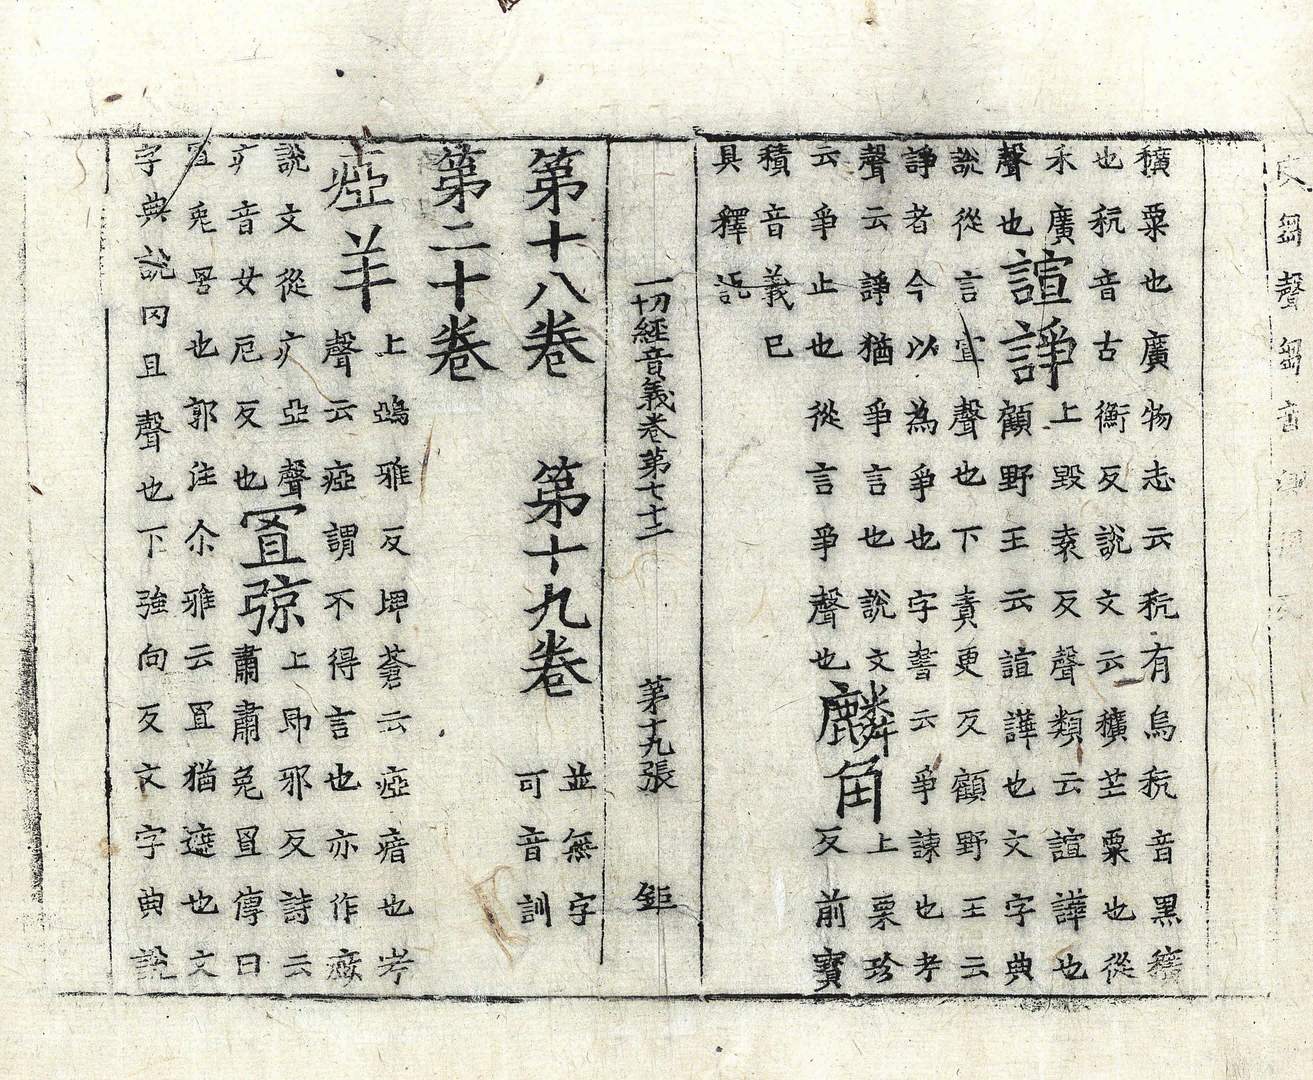 芻聲芻音
穬粟也廣物志云秔有烏秔音黑穬
也秔音古衡反說文云穬芒粟也從
禾廣
聲也
諠諍
上毀袁反聲類云諠譁也
顧野王云諠譁也文字典
說從言宣聲也下責更反顧野王云
諍者今以為爭也字書云爭諫也考
聲云諍猶爭言也說文
云爭止也從言爭聲也
麟角
上栗珍
反前寶
積音義已
具釋訖
一切經音義卷第七十二 第十九張 鉅
第十八卷 第十九卷
並無字
可音訓
第二十卷
瘂羊
上鵶雅反埤蒼云瘂瘖也考
聲云瘂謂不得言也亦作
說文從疒亞聲
疒音女厄反也
罝弶
上即邪反詩云
肅肅兔罝傳曰
罝兔罟也郭注尒雅云罝猶遮也文
字典說冈且聲也下強向反文字典說